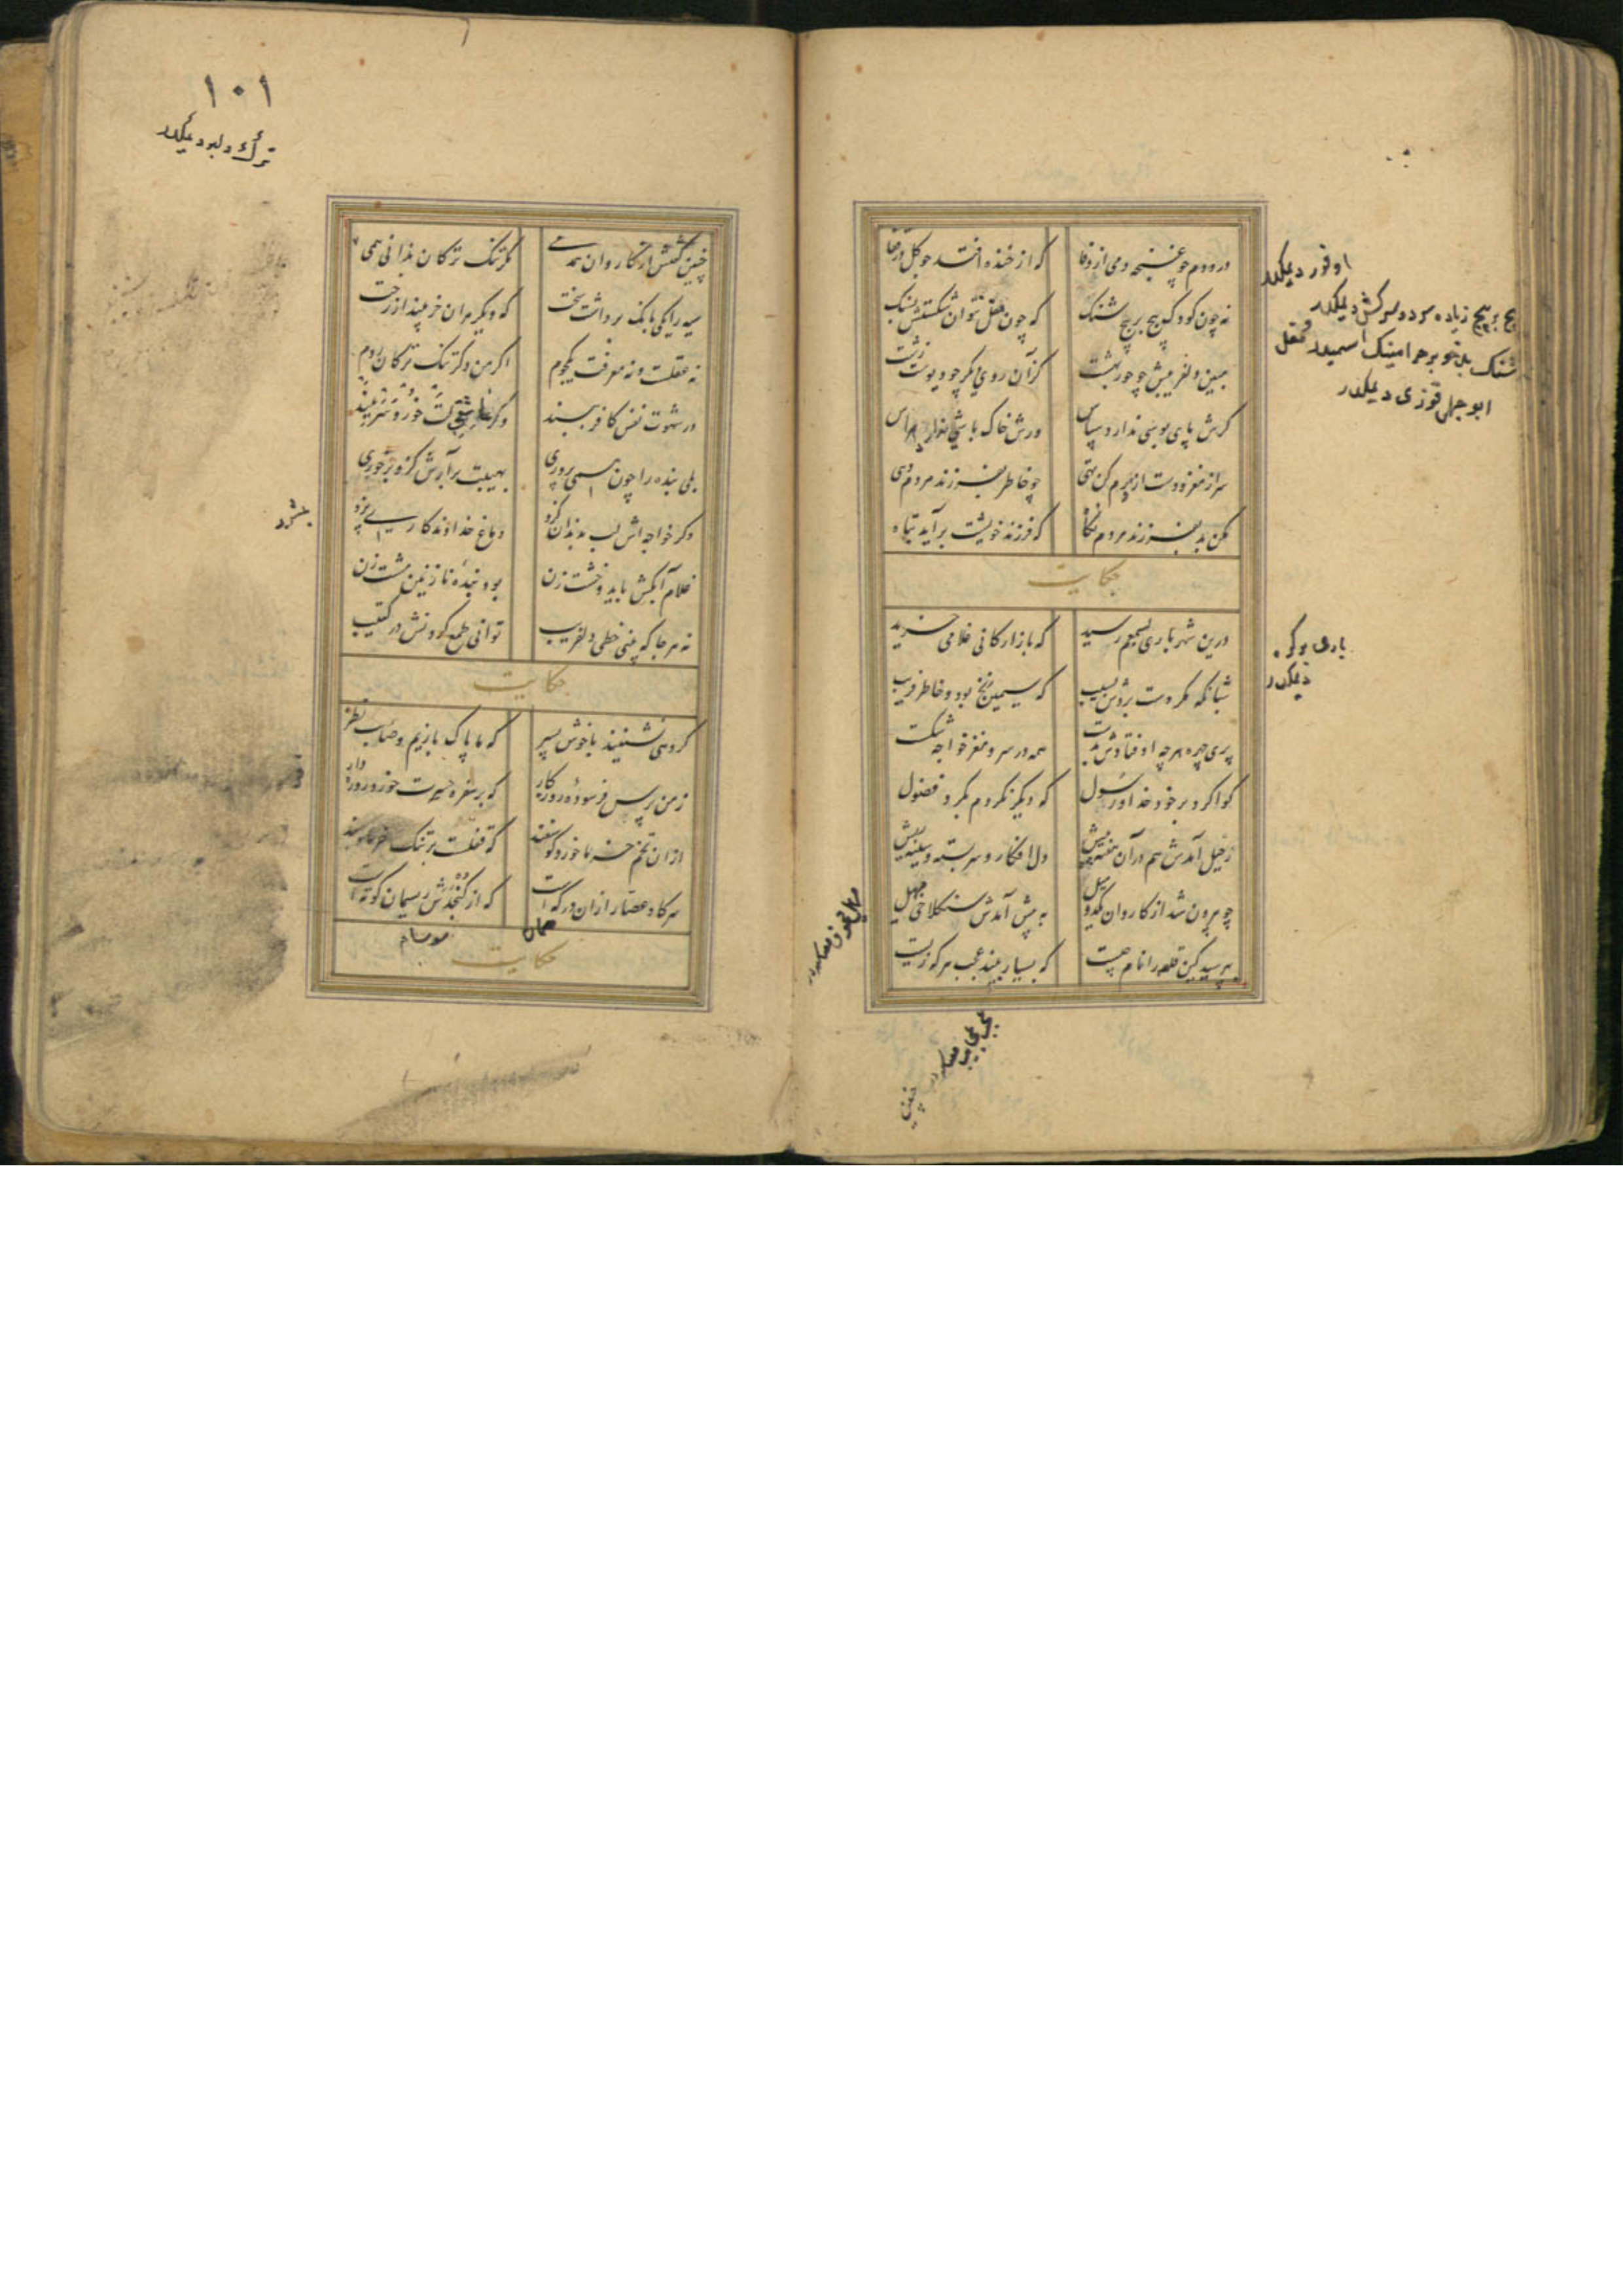 درو دم چو غنچه دمی از وفا که از خنده افتد چو گل در قفا
نه چون کودک پیچ بر پیچ شنک که چون مقل نتوان شکستن بسنک
مبین دلفریبش چو حور بهشت کزان روی دیگر چو دیوست زشت
کرش پای بوسی ندارد سپاس ورش خاک باشی نداند هراس
سر از مغز و دست از درم کن تهی چو خاطر بفرزند مردم دهی
مکن بد بفرزند مردم نگاه که فرزند خویشت برآید تباه
حکایت
درین شهر باری بسمعم رسید که بازارکانی غلامی خرید
شبانکه مکر دست بردش بسیب که سیمین زنخ بود و خاطر فریب
پری چهره هر چه اوفتادش بدست همه در سر و مغز خواجه شکست
کوا کرد بر خود خدا و رسول که دیکر نکردم بکرد فضول
رحیل آمدش هم در آن هفته پیش دل افکار و سر بسته و سینه ریش
چو بیرون شد از کاروان یکدو میل به پیش آمدش سنکلاخی مهیل
بپرسید کین قله را نام چیست که بسیار بیند عجب هر که زیست
اوفور دیمکدر
پیچ بر پیچ زیاده سرد و سرکش دیمکدر
ابو جهل قوزی دیمکدر
باری بر کره
دیمکدر
۱۰۱
ترک دلبر دیمکدر
چنین گفتش از کاروان همدمی مکر تنک ترکان ندانی همی
سیه را یکی بانک برداشت سخت که دیکر مران خر بینداز رخت
نه عقلست و نه معرفت یکجوم اکر من دکر تنک ترکان روم
در شهوت نفس کافر ببند وکر عاشقی لت خور و سر ببند
بلی بنده را چون همی پروری بهیبت برآرش کزو برخوری
وکر خواجه اش لب بدندان کزد دماغ خداوندکاری پزد
غلام آبکش باید و خشت زن بود بنده نازنین مشت زن
نه هر جا که بینی خطی دلفریب توانی طمع کردنش در کتیب
حکایت
کروهی نشینند با خوش پسر که ما پاک بازیم و صاحب نظر
ز من پرس فرسوده روزکار که بر سفره حسرت خورد روزه دار
از ان تخم خرما خورد کوسفند که قفلست بر تنک خرما و بند
سر کاو عصار از ان در که است که از کنجدش ریسمان کوته است
حکایت